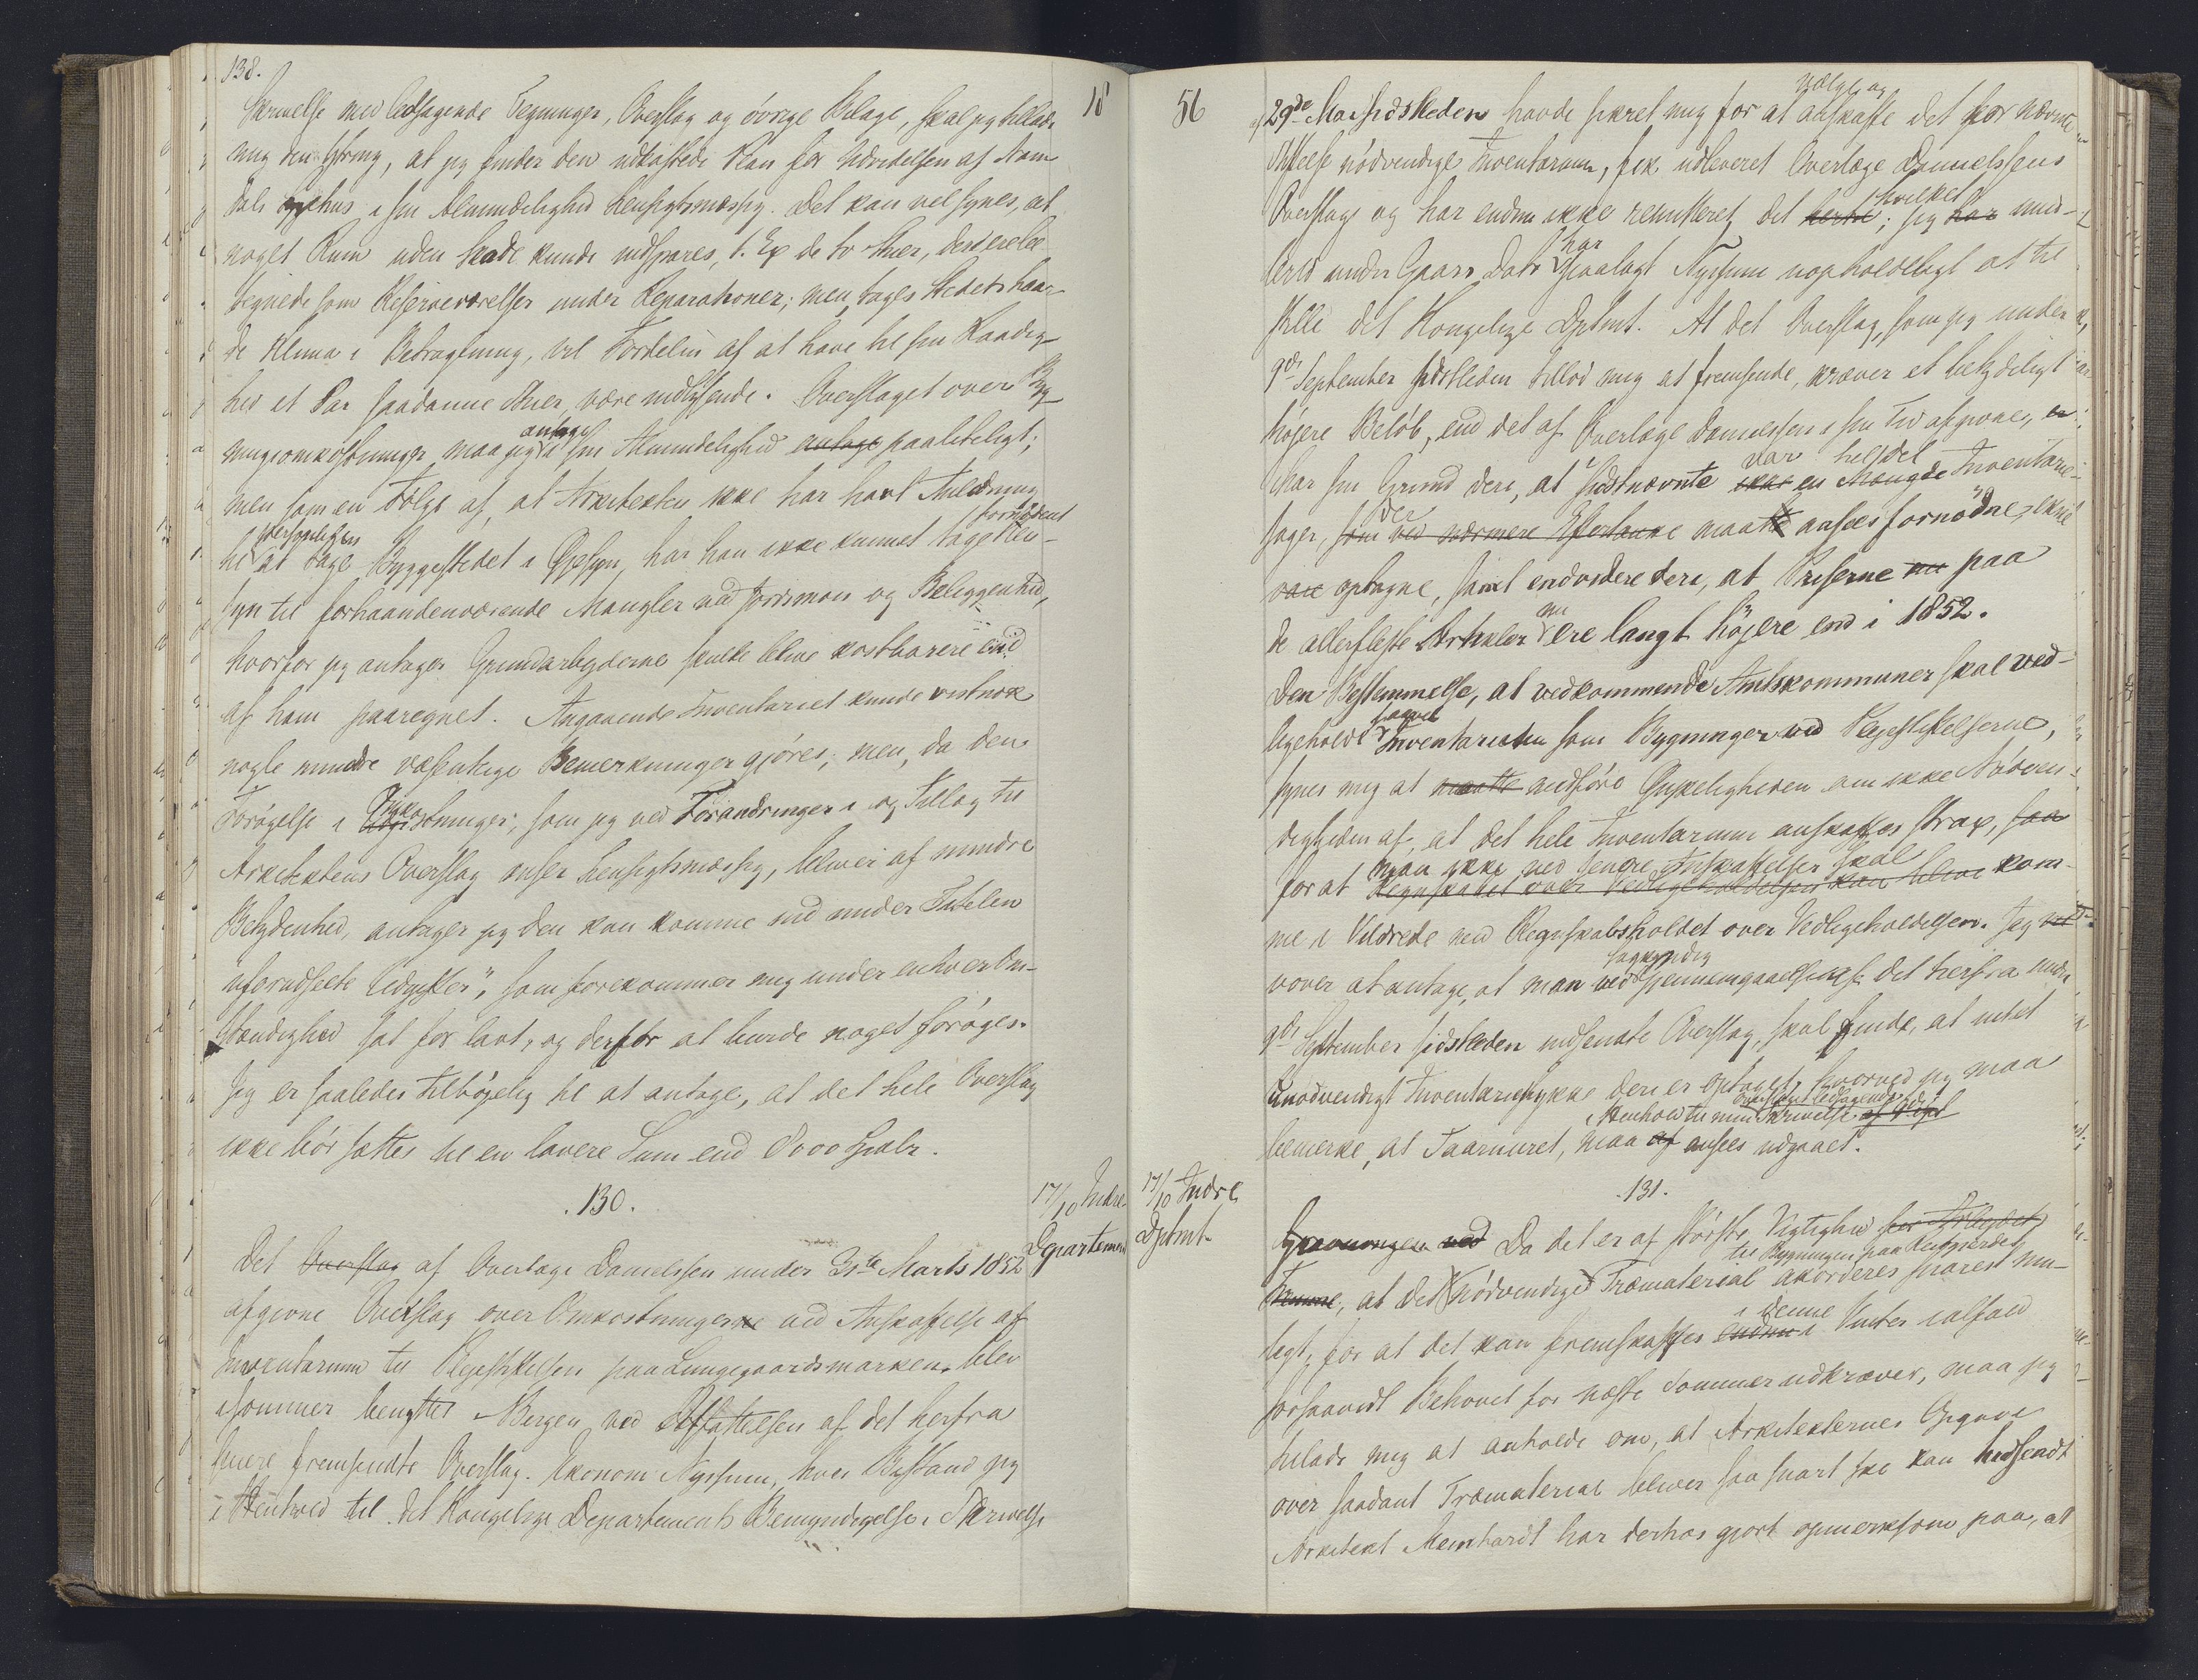 138.
Skrivelse med ledsagende Tegninger, Overslag og övrige Bilage, skal jeg tillade
mig den Ytring, at jeg finder den udkastede Plan for Udvidelsen af
dals Sygehus i sin Almindelighed hensigtsmæssig. Det kan vel synes, at
noget Rum uden Skade kunde indspares, t. Ex de to Stuer, der ere be
tegnede som Reserveværelser under Reparationer; men, tages Stedets haar-
de Klima i Betragtning, vil Fordelen af at have til sin Raadig-
hed et Par saadanne Stuer, være indlysende. Overslaget over Byg-
antage
ningsomkostninger maa jeg i sin Almindelighed antage paalideligt;
men som en Fölge af, at Arkitekten ikke har havt Anledning
fornödent
til at tage Byggestedet i Øjesyn, har han ikke kunnet tage Hen-
syn til forhaandenværende Mangler ved Jordsmon og Beliggenhed,
hvorfor jeg antager Grundarbejderne skulle blive kostbarere end
af ham paaregnet. Angaaende Inventariet kunde vistnok
nogle mindre væsentlige Bemerkninger gjöres; men, da den
Forögelse i Omkostninger, som jeg ved Forandringer i og Tillæg til
Arkitektens Overslag anser hensigtsmæssig, bliver af mindre
Betydenhed, antager jeg den kan komme ind under Titelen
"uforudseete Udgifter", som forekommer mig under enhver Om-
stændighed sat for lavt, og derfor at burde noget foröges.
Jeg er saaledes tilböjelig til at antage, at det hele Overslag
ikke bör sættes til en lavere Sum end 8000 Spdlr.
.130.
17/10 Indre
Departement
Det Overslag af Overlæge Danielssen under 31te Marts 1852
afgivne Overslag over Omkostningerne ved Anskaffelse af
Inventarium til Plejestiftelsen paa Lungegaardsmarken, blev
isommer benyttet i Bergen ved Affattelsen af det herfra
senere fremsendte Overslag. Ekonom Nyssum, hvis Bistand jeg
i Henhold til det Kongelige Departements Bemyndigelse i Skrivelse
18
56
vælge og
af 29de Mai sidstleden havde sikret mig for at anskaffe det for nævnte
Stiftelse nödvendige Inventarium, fik udleveret Overlæge Danielssens
hvilket
Overslag og har endnu ikke remitteret det hertil; jeg har imid-
har
lertid under Gaars Dato paalagt Nyssum uopholdeligt at til
stille det Kongelige Dptmt. At det Overslag, som jeg under
9de September sidstleden tillod mig at fremsende, kræver et betydeligt
höjere Belöb, end det af Overlæge Danielssen i sin Tid afgivne, er
var heldel
har sin Grund deri, at i sidstnævnte ikke en Mængde Inventarie-
der
sager, som ved nærmere Eftertanke maatte ansees fornödne, ikke
vare optagne, samt endvidere deri, at Priserne nu paa
nu
de allerfleste Artikler ere langt höjere end i 1852.
Den Bestemmelse, at vedkommende Amtskommuner skal ved-
saavel
ligeholde Inventariet som Bygninger ved Plejestiftelserne,
synes mig at maatte medföre Ønskeligheden om ikke Nödven-
digheden af, at det hele Inventarium anskaffes strax, saa
man ikke ved senere Anskaffelser skal
for at Regnskabet over Vedligeholdelsen kan blive kom-
me i Vildrede med Regnskabsholdet over Vedligeholdelsen. Jeg vil
sagkyndig
vover at antage, at man ved Gjennemgaaelse af det herfra under
9de September sidstleden indsendte Overslag, skal finde, at intet
unödvendigt Inventariestykke deri er optaget, hvorved jeg maa
Overslaget ledsagende
i Henhold til min Skrivelse af 9de Sept
bemerke, at Taarnuret, maa af ansees udgaaet.
.131.
17/10 Indre
Dptmt.
Gravningen ved Da det er af störste Vigtighed for Arbejdet
til Bygningen paa Reitgjerdet
Fremme, at det nödvendige Træmaterial akorderes snarest mu-
i denne
ligt, for at det kan fremskaffes endnu i Vinter ialfald
forsaavidt Behovet for næste Sommer udkræver, maa jeg
tillade mig at anholde om, at Arkitekternes Opgave
over saadant Træmaterial bliver saa snart ske kan hidsendt
Arkitekt Meinhardt har derhos gjort opmerksom paa, at